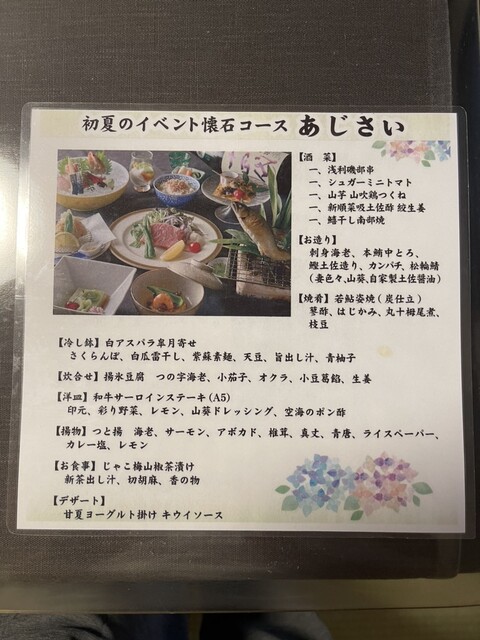 初夏のイベント懐石コース あじさい
【酒 菜】
一、浅利磯部串
一、シュガーミニトマト
一、山芋 山吹鶏つくね
一、新順菜吸土佐酢 絞生姜
一、鱚干し南部焼
【お造り】
刺身海老、本鮪中とろ、
鰹土佐造り、カンパチ、松輪鯖
（妻色々、山葵、自家製土佐醤油）
【焼肴】若鮎姿焼（炭仕立）
蓼酢、はじかみ、丸十梔尾煮、
枝豆
【冷し鉢】白アスパラ皐月寄せ
さくらんぼ、白瓜雷干し、紫蘇素麺、天豆、旨出し汁、青柚子
【炊合せ】揚氷豆腐 つの字海老、小茄子、オクラ、小豆葛餡、生姜
【洋皿】和牛サーロインステーキ(A5)
印元、彩り野菜、レモン、山葵ドレッシング、空海のポン酢
【揚物】つと揚 海老、サーモン、アボカド、椎茸、真丈、青唐、ライスペーパー、
カレー塩、レモン
【お食事】じゃこ梅山椒茶漬け
新茶出し汁、切胡麻、香の物
【デザート】
甘夏ヨーグルト掛け キウイソース